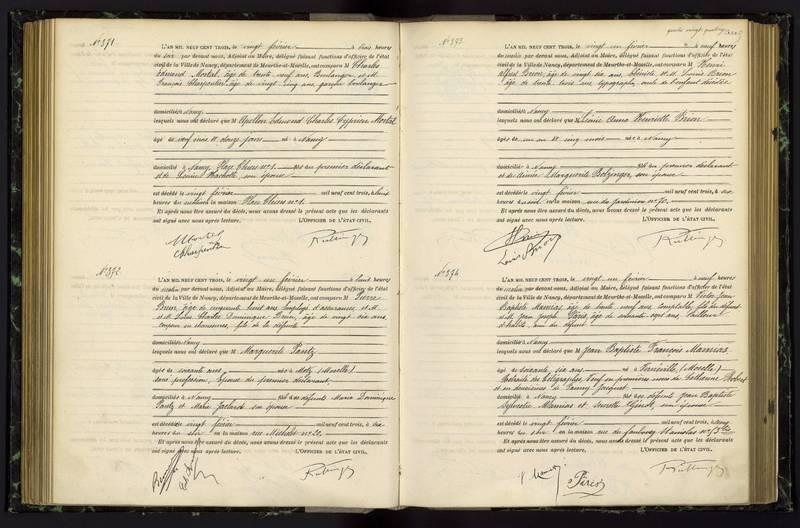 N° 371
L'AN MIL NEUF CENT TROIS, le vingt février à trois heures
du soir par devant nous, Adjoint au Maire, délégué faisant fonctions d'officier de l'état
civil de la Ville de Nancy, département de Meurthe-et-Moselle, ont comparu M Charles
Edmond Mortel, âgé de trente neuf ans, Boulanger et M
François Charpentier âgé de vingt cinq ans garçon boulanger
domiciliés Nancy
lesquels nous ont déclaré que M Apollon Edmond Charles Cyprien Mortel
âgé de neuf mois et douze jours né à Nancy
domicilié à Nancy, Place Thiers n° 1. fils du premier déclarant
et de Louise son épouse
est décédé le vingt février mil neuf cent trois, à
heures du matin en la maison Place Thiers n° 1.
Et après nous être assuré du décès, nous avons dressé le présent acte que les déclarants
ont signé avec nous après lecture. L'OFFICIER DE L'ÉTAT CIVIL,
Mortel
Charpentier
N° 372
L'AN MIL NEUF CENT TROIS, le vingt un février à huit heures
du matin par devant nous, Adjoint au Maire, délégué faisant fonctions d'officier de l'état
civil de la Ville de Nancy, département de Meurthe-et-Moselle, ont comparu M Pierre
Brun, âgé de cinquante huit ans, Employé d'assurances, et M
et Louis Charles Dominique Brun, âgé de vingt six ans,
coupeur en chaussures, fils de la défunte
domiciliés Nancy
lesquels nous ont déclaré que M Marguerite Pantz
âgée de soixante ans née à Metz (Moselle)
sans profession, épouse du premier déclarant,
domiciliée à Nancy fille de défunts Marie Dominique
Pantz et Marie Jaclard son épouse
est décédée vingt février mil neuf cent trois, à six
heures du soir en la maison rue Michelet n° 20.
Et après nous être assuré du décès, nous avons dressé le présent acte que les déclarants
ont signé avec nous après lecture. L'OFFICIER DE L'ÉTAT CIVIL,
N° 373
L'AN MIL NEUF CENT TROIS, le vingt un février à neuf heures
du matin par devant nous, Adjoint au Maire, délégué faisant fonctions d'officier de l'état
civil de la Ville de Nancy, département de Meurthe-et-Moselle, ont comparu M Henri
Alfred Brion, âgé de vingt six ans, et M Louis Brion
âgé de trente trois ans, typographe, oncle de l'enfant décédée
domiciliés Nancy
lesquels nous ont déclaré que M Louise Anna Henriette Brion
âgée de un an et cinq mois née à Nancy
domiciliée à Nancy fille du premier déclarant
et de Aimée Marguerite Bolzinger, son épouse
est décédée le vingt février mil neuf cent trois, à
heures du soir en la maison rue du n° 70.
Et après nous être assuré du décès, nous avons dressé le présent acte que les déclarants
ont signé avec nous après lecture. L'OFFICIER DE L'ÉTAT CIVIL,
Louis Brion
N° 374
L'AN MIL NEUF CENT TROIS, le vingt un février à neuf heures
du matin par devant nous, Adjoint au Maire, délégué faisant fonctions d'officier de l'état
civil de la Ville de Nancy, département de Meurthe-et-Moselle, ont comparu M Victor Jean
Baptiste Mamias, âgé de trente neuf ans, Comptable, fils du défunt
et M Jean Joseph Pâris, âgé de soixante sept ans, Tailleur
d'habits, ami du défunt
domiciliés à Nancy
lesquels nous ont déclaré que M Jean Baptiste François Mamias
âgé de soixante six ans né à (Moselle)
Retraité des télégraphes, Veuf en premières noces de Catherine Robert
et en deuxièmes de Fanny Jacquot
domicilié à Nancy fils de défunts Jean Baptiste
Sylvestre Mamias et son épouse
est décédé le vingt février mil neuf cent trois, à cinq
heures du soir en la maison rue du faubourg Stanislas n°
Et après nous être assuré du décès, nous avons dressé le présent acte que les déclarants
ont signé avec nous après lecture. L'OFFICIER DE L'ÉTAT CIVIL,
Pâris